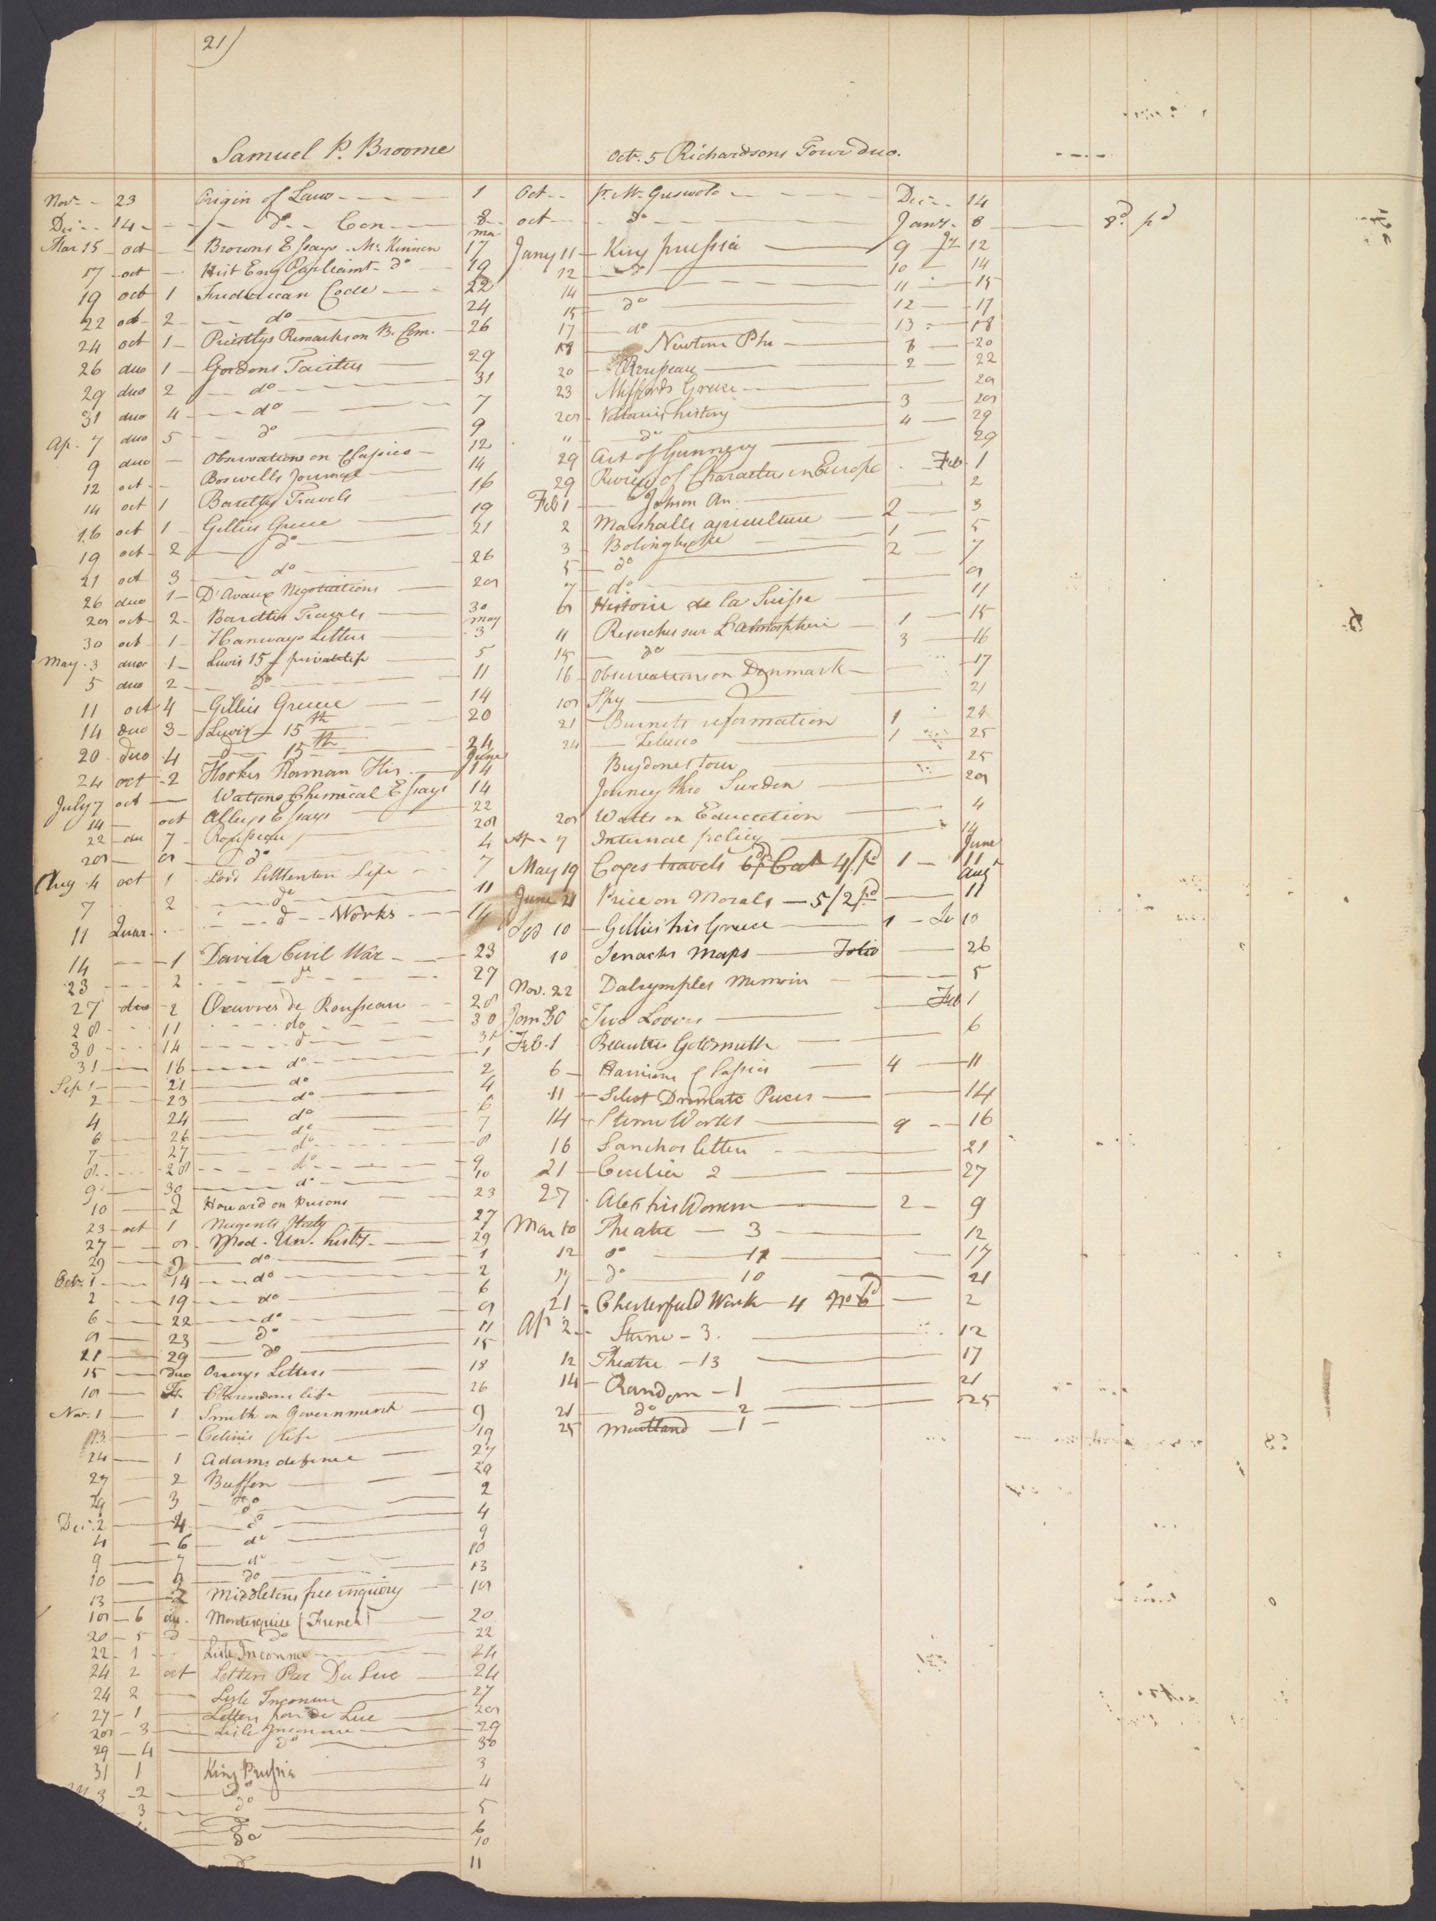 21)
Samuel P. Broome
Nov. - 23 Origin of Laws 1
Dec. - 14 - do - Con 8
Mar 15 - oct - Browns Essays - Mc Kinnen mar 17
17 - oct - Hist Eng Parliamt - do 19
19 oct 1 Frederican Code 22
22 oct - 2 - do 24
24 oct 1 - Priestlys Remarks on B. Com. 26
26 duo 1 - Gordons Tacitus 29
29 duo 2 - do 31
31 duo 4 - do 7
Ap. 7 duo 5 - do 9
9 duo - Observations on Classics - 12
12 oct - Boswells Journal 14
14 oct 1 Barettys Travels 16
16 oct 1 - Gillies Greece 19
19 oct 2 - do 21
21 oct 3 - do 26
26 duo 1 - D'Avaux Negotiations 28
28 oct - 2 - Barettis Travels 30
30 oct - 1 - Hanways Letters may 3
May. 3 duo 1 - Lewis 15th private life 5
5 duo 2 - do 11
11 oct 4 - Gillies Greece 14
14 duo 3 - Lewis - 15th 20
20 duo 4 - do 15th 24
24 oct - 2 Hookes Roman His. June 14
July 7 oct - Watsons Chemical Essays 14
14 - oct Alleys Essays 22
22 - du 7 - Rousseau 28
28 - 8 - do 4
Aug - 4 oct 1 - Lord Littleton Life 7
7 2 - do 11
11 Quar. - do - Works 14
14 - 1 Davila Civil War 23
23 - 2 - do 27
27 duo - 2 Oeuvres de Rousseau 28
28 11 do 30
30 14 do 31
31 - 16 - do 1
Sep. 1 - 21 do 2
2 - 23 do 4
4 24 do 6
6 26 do 7
7 27 do 8
8 28 do 9
9 30 do 10
10 - 2 Howard on prisons 23
23 - oct 1 Nugents Italy 27
27 - 8 Mod. Un. hist. 29
29 - 9 do 1
Oct. 1 - 14 do 2
2 - 19 do 6
6 - 22 do 8
8 23 do 11
21 29 do 15
15 - duo Orrerys Letters 18
18 - Clarendons life 26
Nov. 1 - 1 Smith on Government 9
13 - life 19
24 - 1 Adams defence 27
27 2 Buffon 29
29 3 do 2
Dec. 2 - 4 do 4
4 - 6 do 9
9 - 7 do 10
10 - 9 do 13
13 - 2 Middletons free inquiry 18
18 - 6 du. Montesquieu (French) 20
20 - 5 do 22
22 - 1 Lisle Inconnue 24
24 2 oct Letters Par Du Luc 24
24 2 Lisle Inconnue 27
27 - 1 Letters par De Luc 28
28 - 3 Lisle Inconnue 29
29 - 4 do 30
31 1 King Prussia 3
3 - 2 do 4
3 do 5
do 6
do 10
do 11
Oct. 5 Richardsons Tour duo.
Oct - pr. Mr. Griswold Dec. - 14
oct - do Jany. - 8 8d. pd
Jany 11 - King prussia 9 Jy 12
12 do 10 - 14
14 11 - 15
15 - do 12 - 17
17 - do 13 - 18
18 Newtons Phi 1 - 20
20 - Rousseau 2 22
23 Mitfords Greece 28
28 - Voltaires history 3 28
" do 4 - 29
29 Art of Gunnery 29
29 Review of Characters in Europe - Feb. 1
Feb 1 Johnson An. 2
2 Marshalls agriculture 2 3
3 - Bolingbroke 1 5
5 - do 2 7
7 do 8
8 Histoire de la Suisse 11
11 Reserches sur L'atmosphere 1 - 15
15 do 3 16
16 - Observations on Denmark - 17
18 Spy 21
21 - Burnets reformation 1 24
24 1 25
Brydones tour 25
Journey thro Sweden 28
28 Watts on Education 4
Ap - 7 Internal policy 14
May 19 Coxes travels 6d Cat 4/ pd 1 - June 11
June 21 Price on Morals - 5/2 pd Augt 11
Sep 10 - Gillies his Greece 1 - 10
10 Maps - Folio 26
Nov. 22 Dalrymples Memoirs 5
Jan 30 Two Lovers Feb 1
Feb. 1 Beauties Goldsmith 6
6 - Harrisons Classics 4 - 11
11 - Select Dramatic Pieces 14
14 - Sterne Works 9 - 16
16 Sanchos letters 21
21 - Cecilia 2 27
27 Alex his Women 2 - 9
Mar 10 Theatre - 3 12
12 do 11 17
17 - do 10 21
21 - Chesterfield Works - 4 No 6d 2
Ap 2 - Sterne - 3. 12
12 Theatre - 13 17
14 - Random - 1 21
21 do 2 25
25 Maitland - 1 -